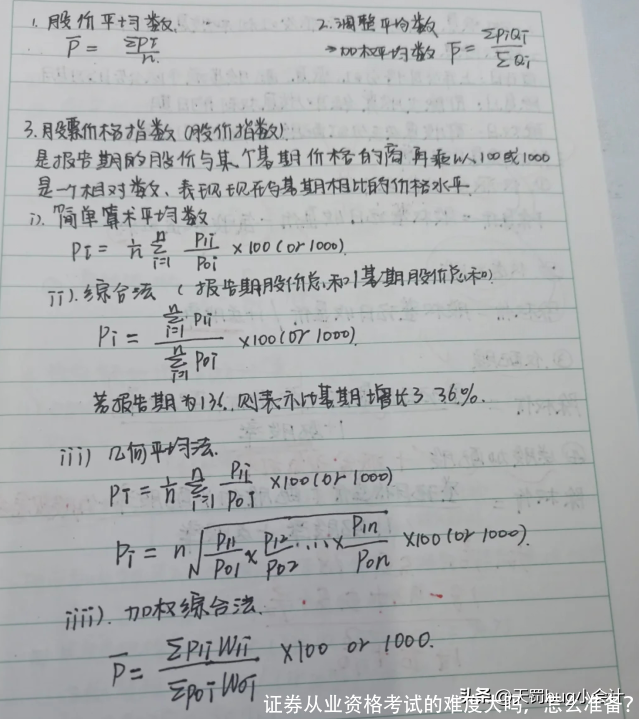 1. 股价平均数. 2. 调整平均数
P̄ = ΣPi / n. → 加权平均数 P̄ = ΣPiQi / ΣQi
3. 股票价格指数 (股价指数)
是报告期的股价与某个基期价格的商再乘以100或1000
是一个相对数、表现现在与基期相比的价格水平.
i). 简单算术平均数
PI = 1/n Σ(i=1,n) P1i/P0i ×100(or 1000).
ii). 综合法 (报告期股价总和 | 基期股价总和)
Pi = Σ(i=1,n) P1i / Σ(i=1,n) P0i ×100(or 1000).
若报告期为136, 则表示比基期增长3 36%.
iii) 几何平均法.
PI = 1/n Σ(i=1,n) P1i/P0i ×100(or 1000)
Pi = n√(P11/P01 × P12/P02 ... × P1n/P0n) ×100(or 1000).
iiii). 加权综合法.
P̄ = ΣP1iW1i / ΣP0iW0i ×100 or 1000.
头条 @天罚bug小会计
证券从业资格考试的难度大吗，怎么准备？